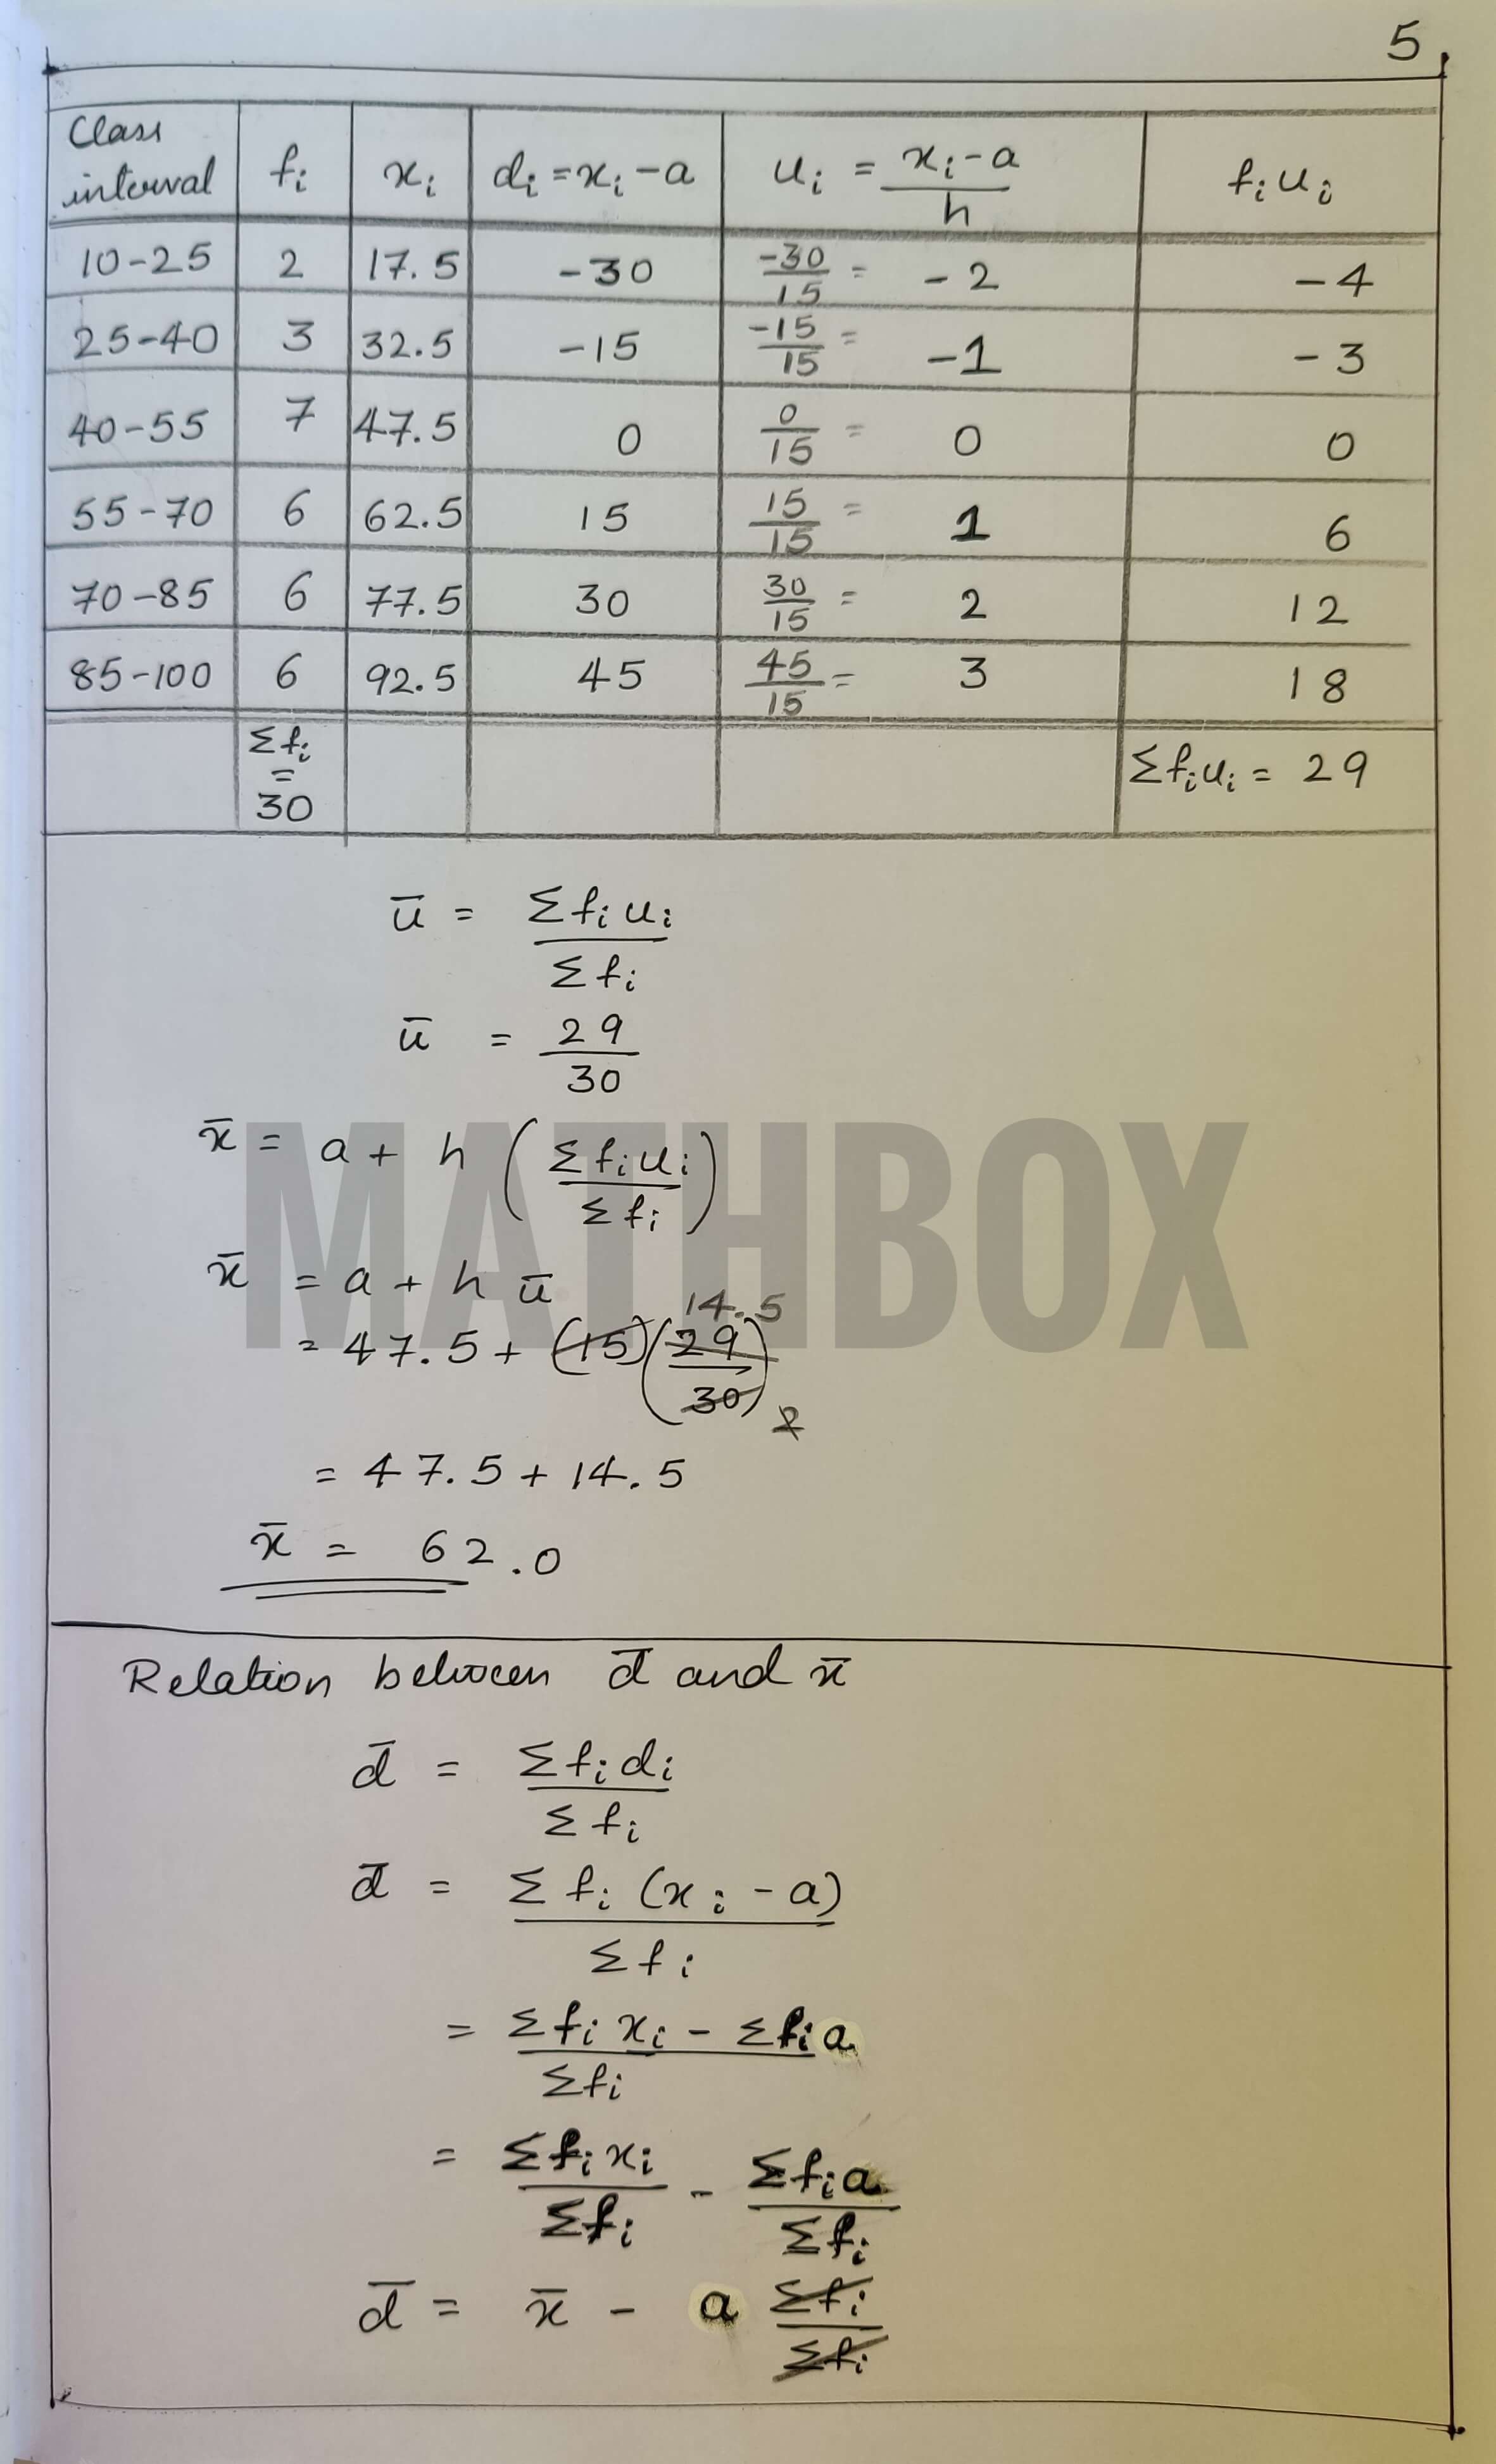 5
Class interval | fi | xi | di = xi - a | ui = (xi - a)/h | fi ui
10-25 | 2 | 17.5 | -30 | -30/15 = -2 | -4
25-40 | 3 | 32.5 | -15 | -15/15 = -1 | -3
40-55 | 7 | 47.5 | 0 | 0/15 = 0 | 0
55-70 | 6 | 62.5 | 15 | 15/15 = 1 | 6
70-85 | 6 | 77.5 | 30 | 30/15 = 2 | 12
85-100 | 6 | 92.5 | 45 | 45/15 = 3 | 18
Σfi = 30 | Σfiui = 29
ū = Σfiui / Σfi
ū = 29/30
x̄ = a + h (Σfiui / Σfi)
x̄ = a + h ū
14.5
= 47.5 + (15)(29/30) 2
= 47.5 + 14.5
x̄ = 62.0
MATHBOX
Relation between d̄ and x̄
d̄ = Σfidi / Σfi
d̄ = Σfi (xi - a) / Σfi
= Σfi xi - Σfi a / Σfi
= Σfixi / Σfi - Σfia / Σfi
d̄ = x̄ - a Σfi / Σfi